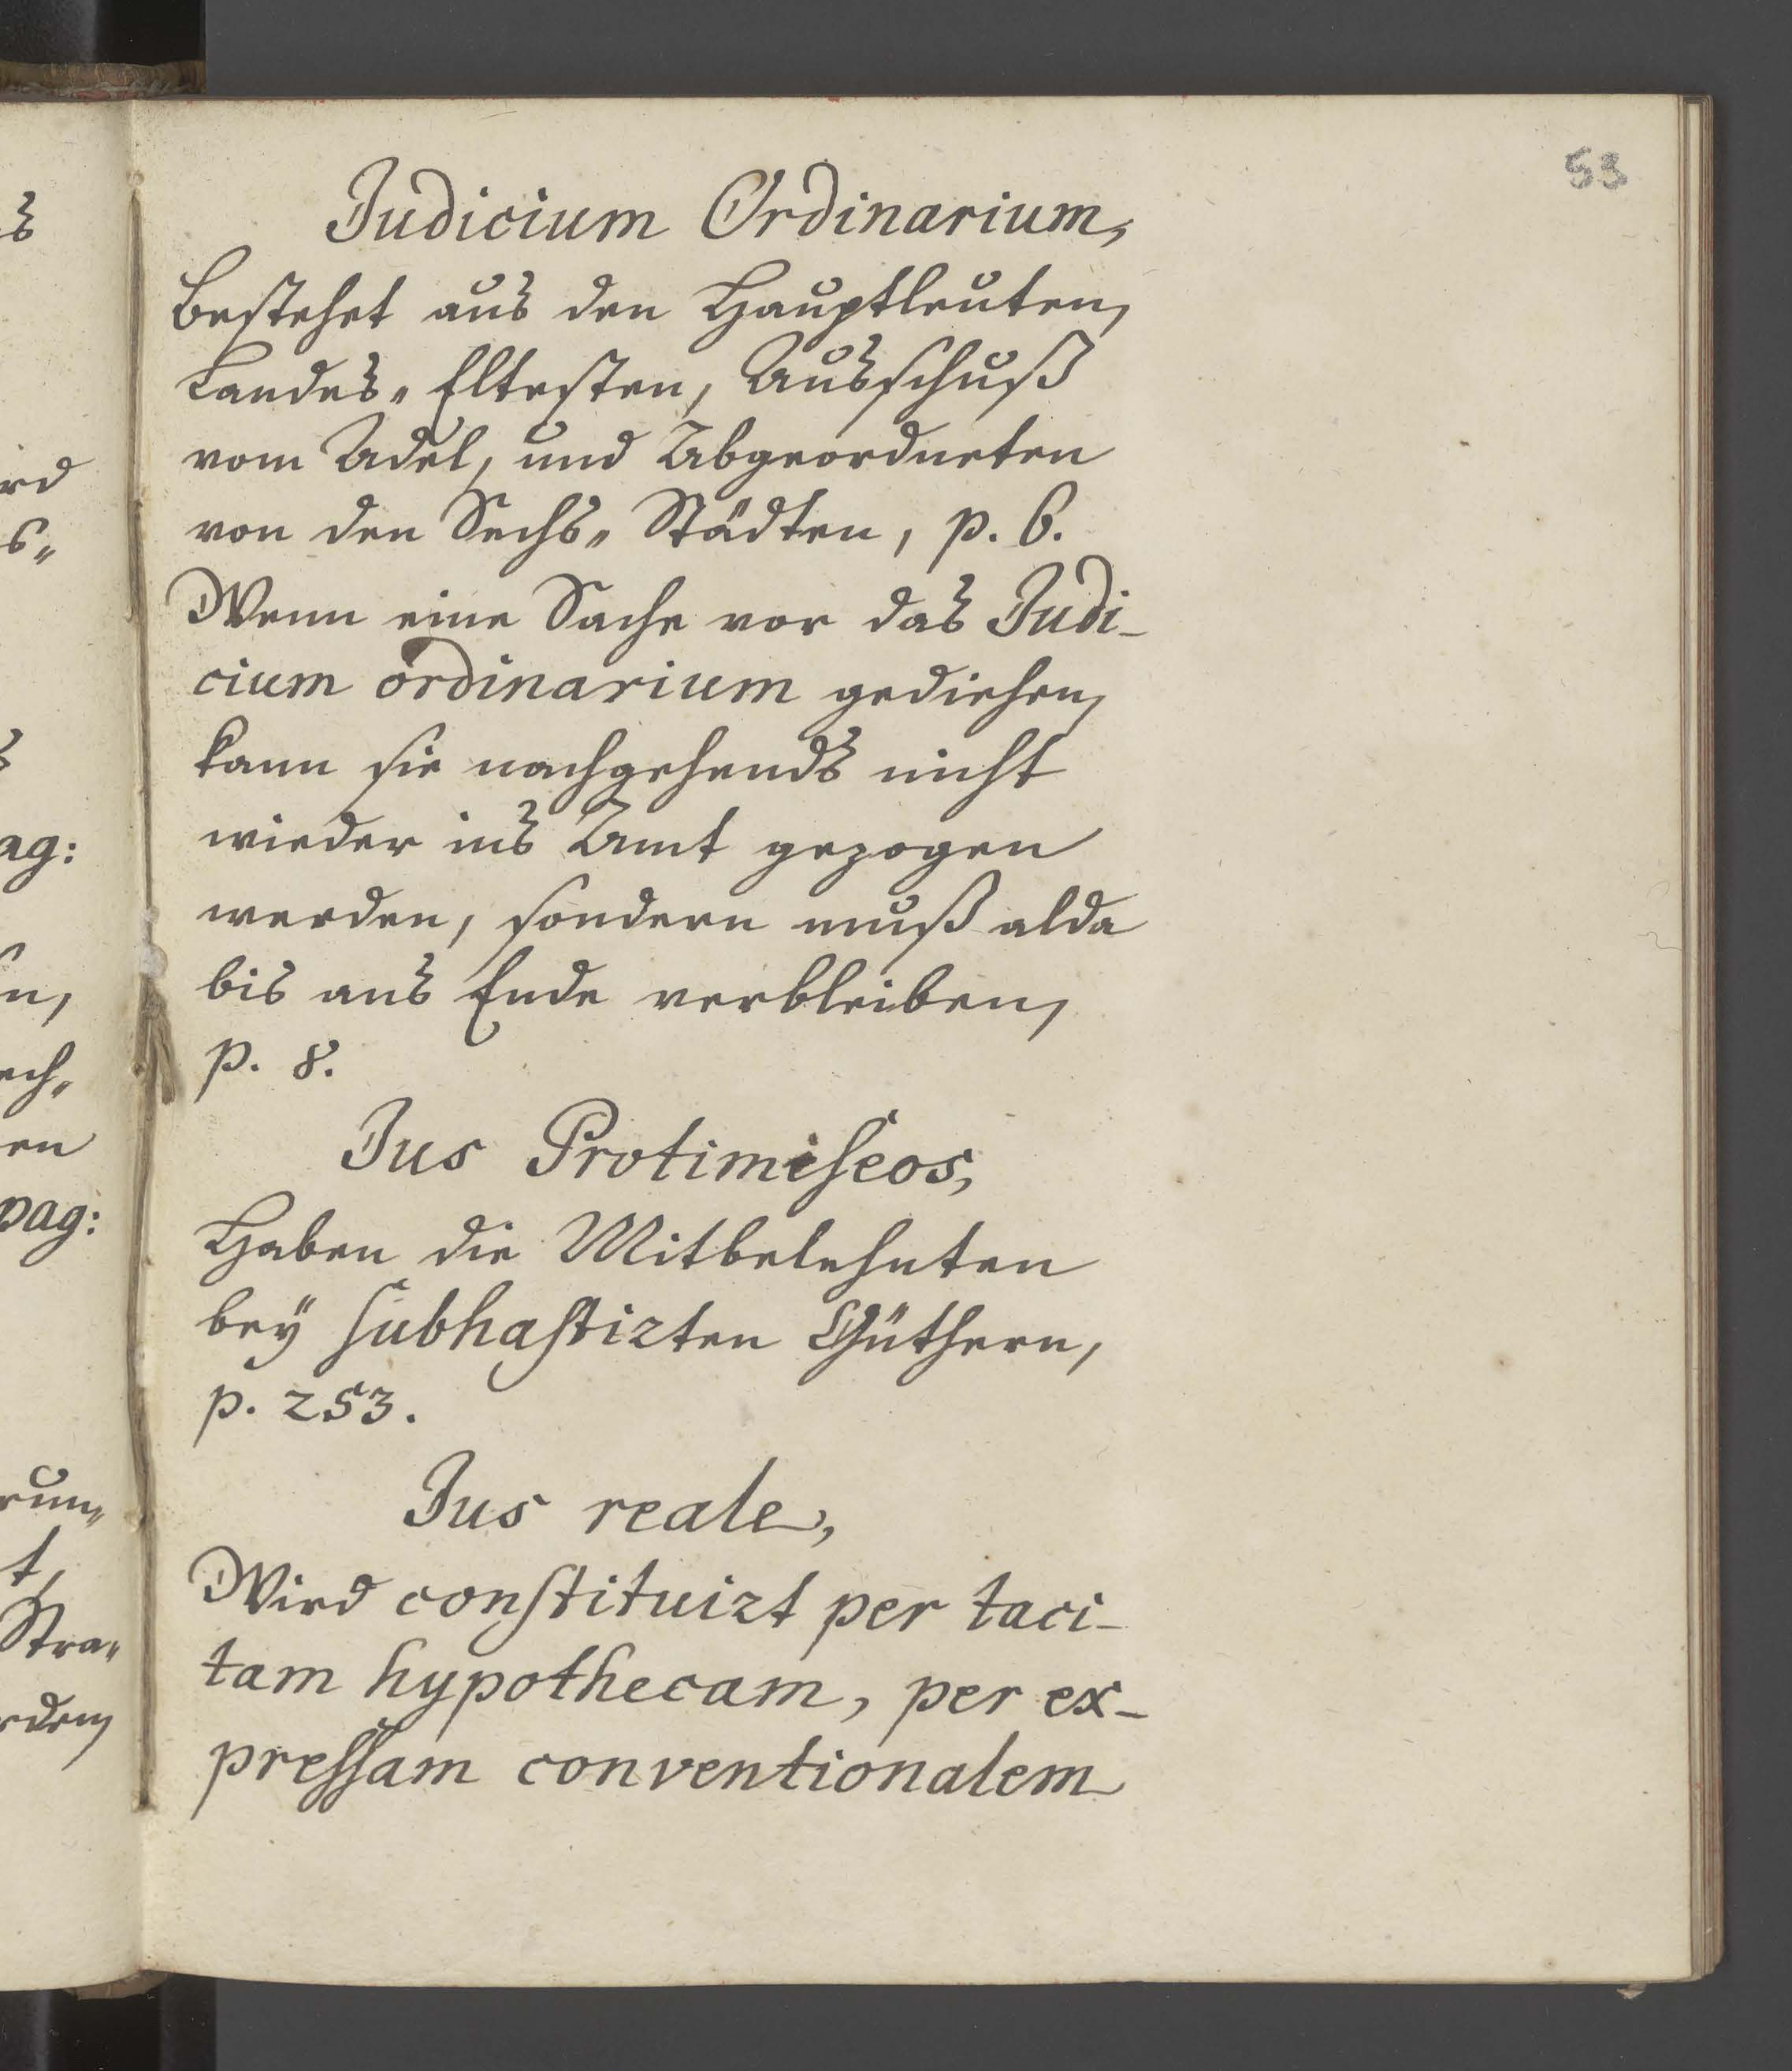 53
Judicium Ordinarium,
Bestehet aus den Hauptleuten,
Landes-Eltesten, Ausschuß
vom Adel, und Abgeordneten
von den Sechs-Städten, p. 6.
Wenn eine Sache vor das Judi-
cium ordinarium gediehen,
kann sie nachgehends nicht
wieder ins Amt gezogen
werden, sondern muß alda
bis ans Ende verbleiben,
p. 8.
Jus Protimiseos,
Haben die Mitbelehnten
beÿ subhastirten Güthern,
p. 253.
Jus reale,
Wird constituirt per taci-
tam hypothecam, per ex-
pressam conventionalem